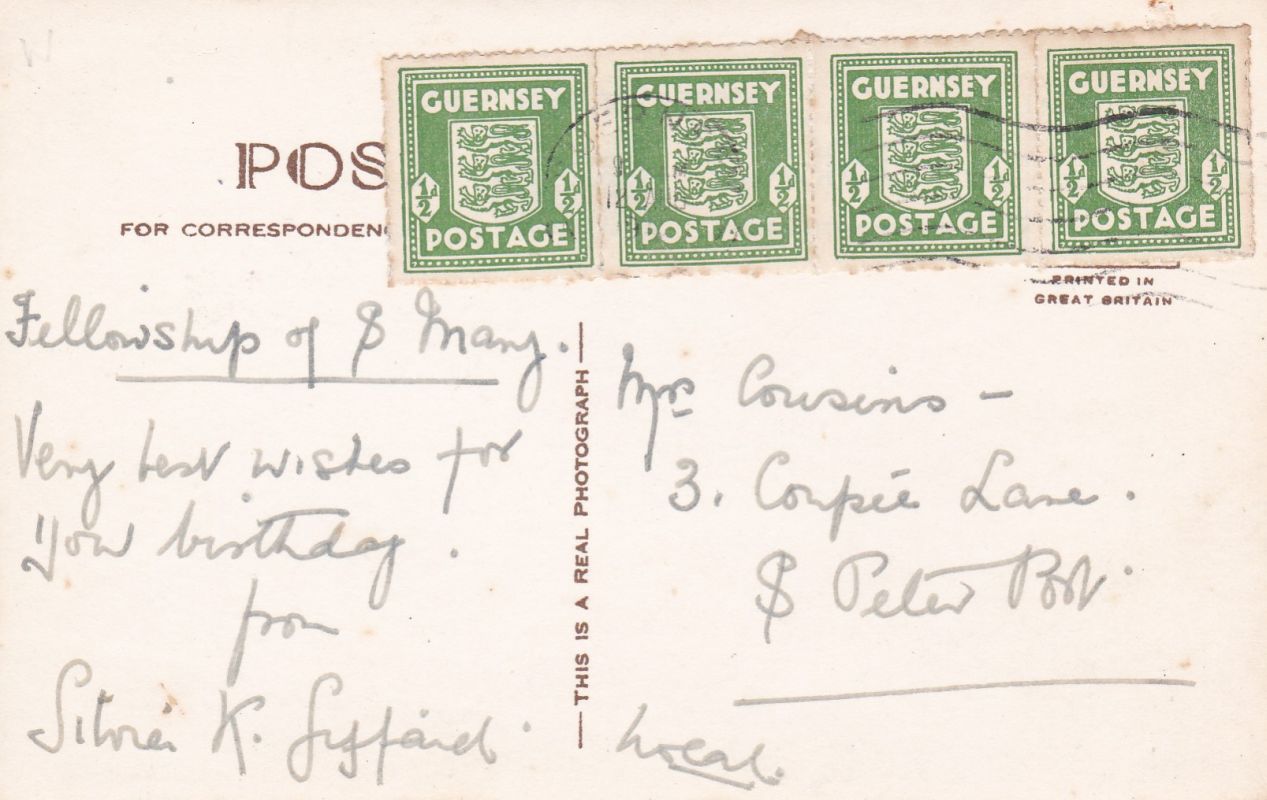 W
POS
FOR CORRESPONDENC
GUERNSEY
½d ½d
POSTAGE
GUERNSEY
½d ½d
POSTAGE
GUERNSEY
½d ½d
POSTAGE
GUERNSEY
½d ½d
POSTAGE
PRINTED IN
GREAT BRITAIN
Fellowship of S Mary.
Very best wishes for
your birthday.
from
K. Giffard.
THIS IS A REAL PHOTOGRAPH
Mrs Cousins –
3. Coupée Lane.
S Peter Port.
Local.